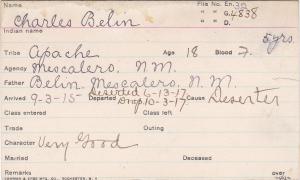 Name File No. En. 30
Charles Belin " " G. 4838
Indian name " " D.
5 yrs.
Tribe Apache Age 18 Blood 7.
Agency Mescalero, N.M.
Father Belin Mescalero, N.M.
Deserted 6-13-17
Arrived 9-3-15 Departed Drop. 10-3-17 Cause Deserter
Class entered Class left
Trade Outing
Character Very Good
Married Deceased
Remarks over